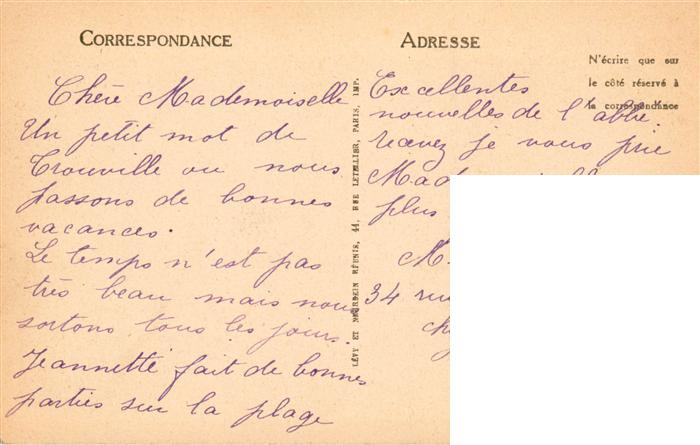 CORRESPONDANCE
Chère Mademoiselle
Un petit mot de
Trouville ou nous
passons de bonnes
vacances.
Le temps n'est pas
très beau mais nous
sortons tous les jours.
Jeannette fait de bonnes
parties sur la plage
LÉVY ET NEURDEIN RÉUNIS, 44, RUE LETELLIER, PARIS, IMP.
ADRESSE
N'écrire que sur
le côté réservé à
la correspondance
Excellentes
nouvelles de l'abbé.
recevez je vous prie
plus
M.
34 rue